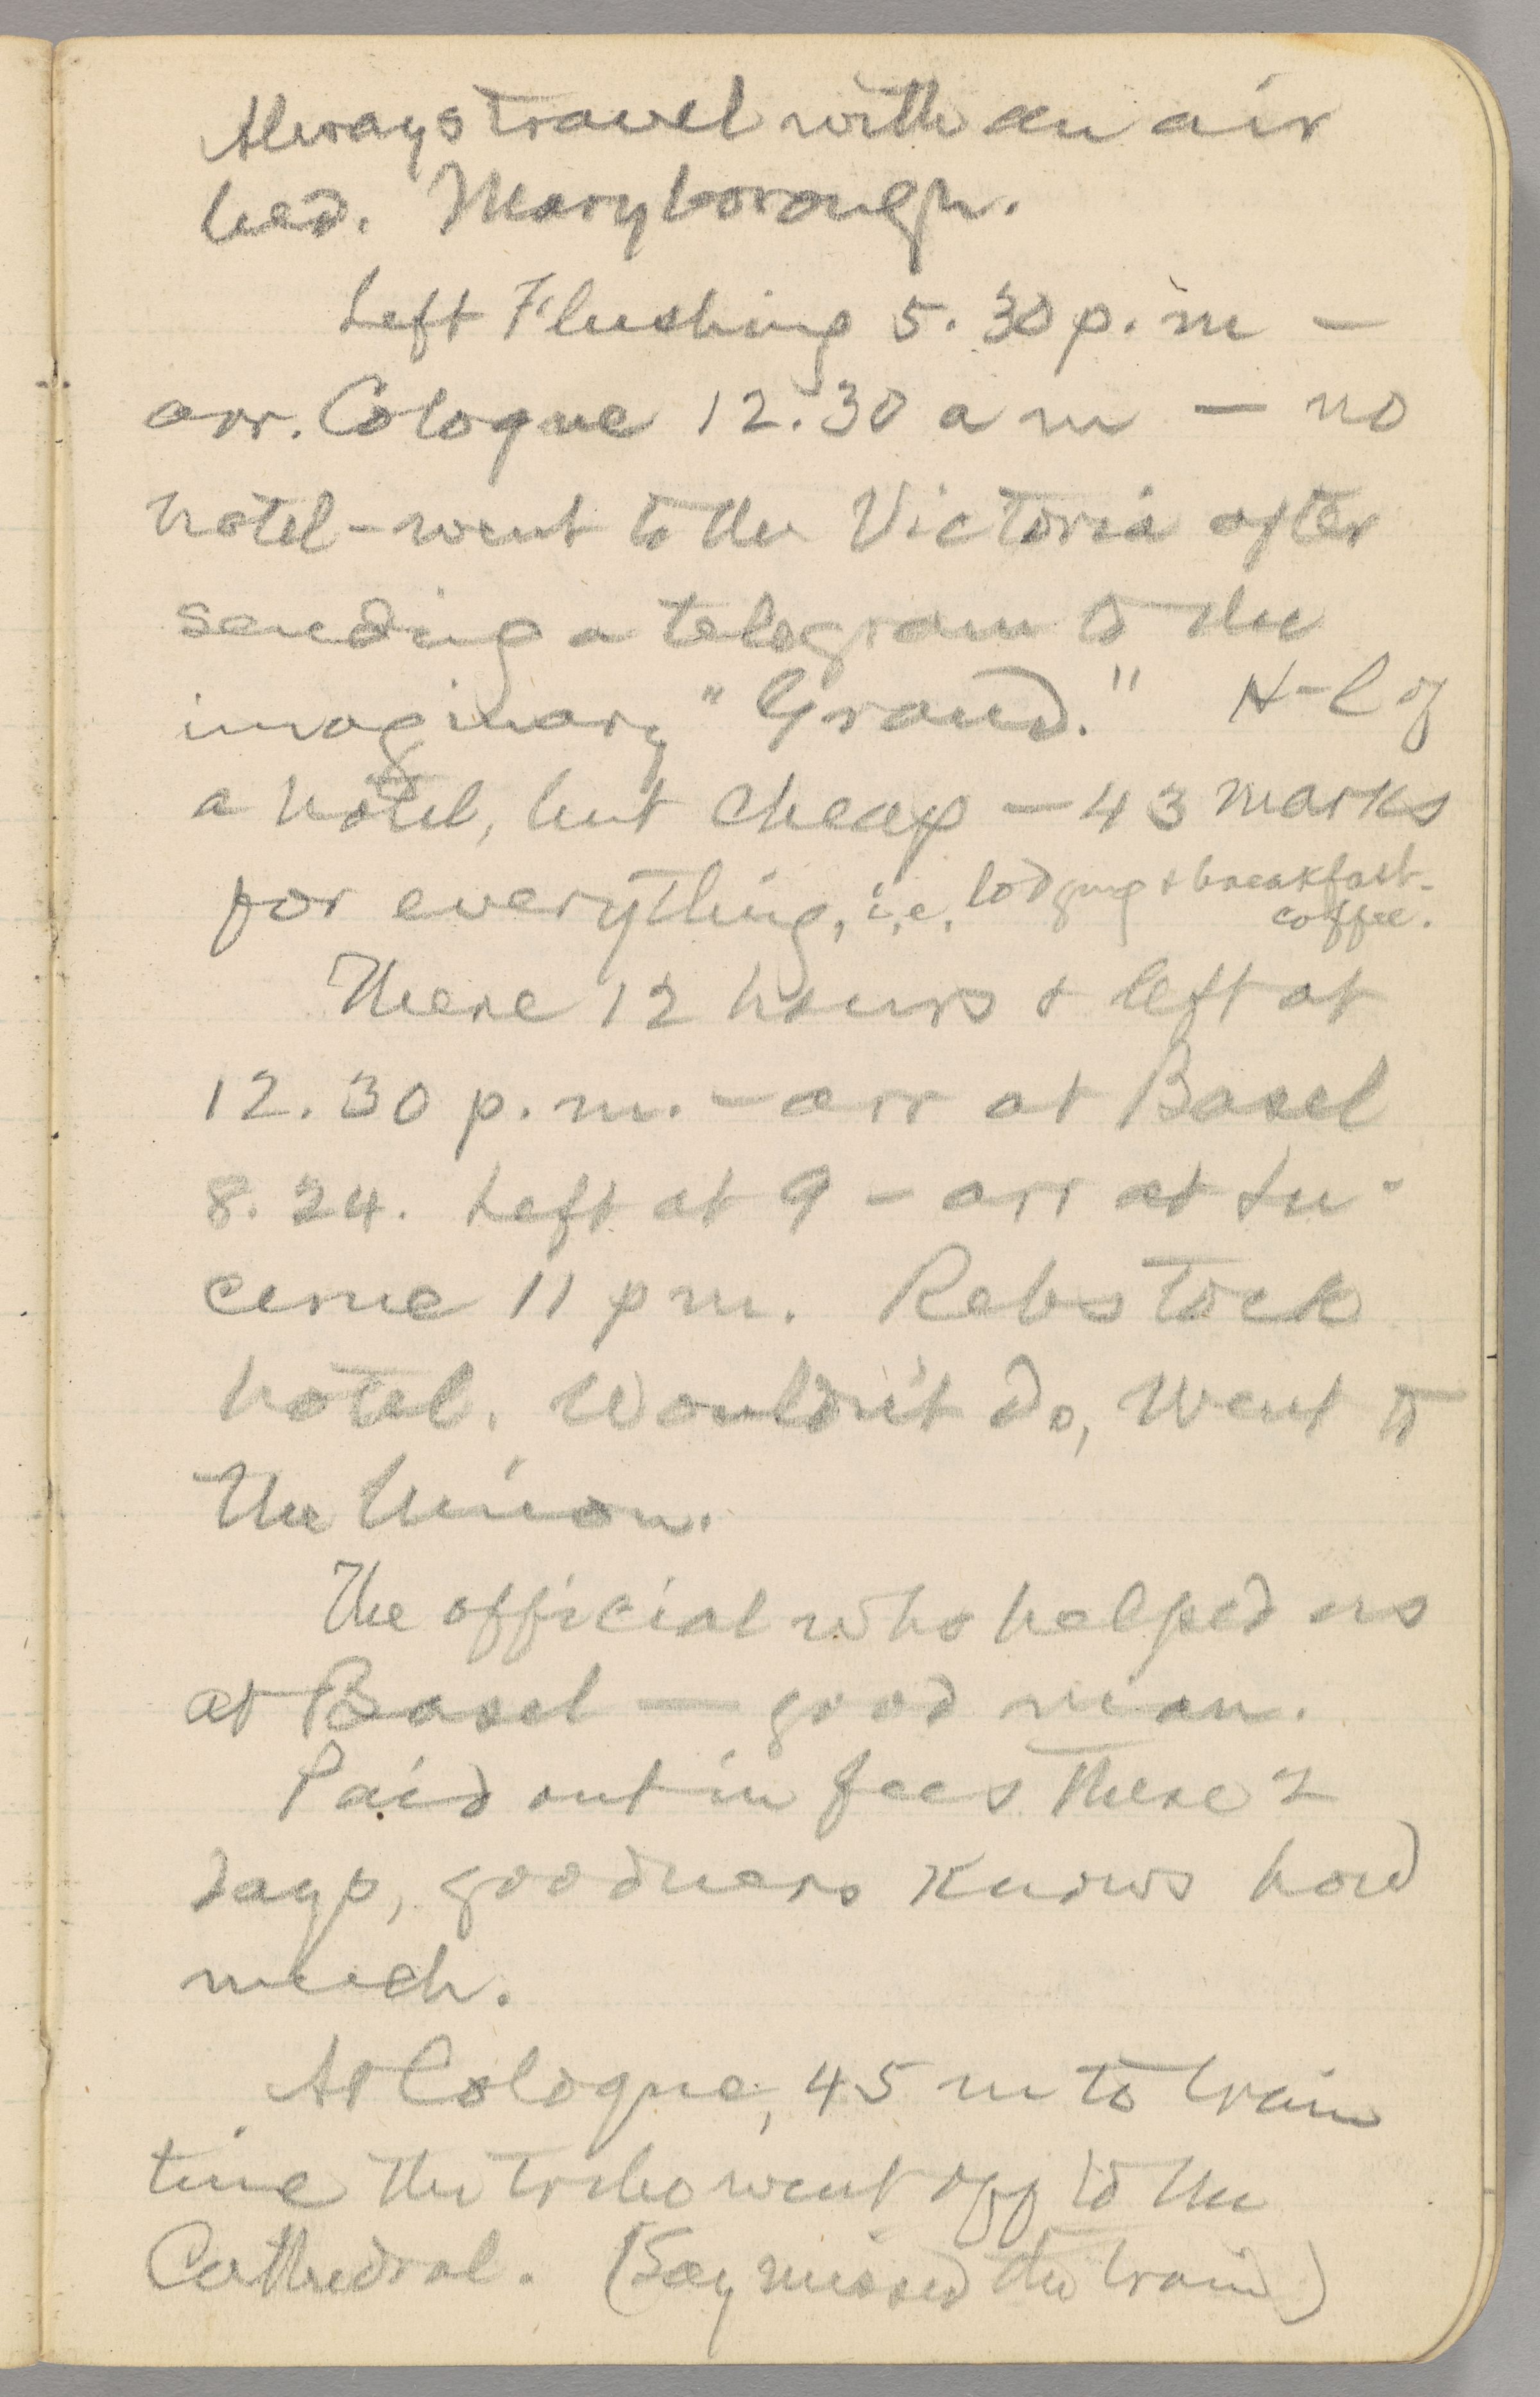 Always travel with an air
bed. Maryborough.
Left Flushing 5.30 p.m —
arr. Cologne 12.30 a m — no
hotel - went to the Victoria after
sending a telegram to the
imaginary "Grand." H-l of
a hotel, but cheap — 43 marks
for everything, i.e. lodging & breakfast-
coffee.
There 12 hours & left at
12.30 p.m. - arr at Basel
8.24. Left at 9 - arr at Lu-
cerne 11 p m. Rebstock
hotel. Wouldn't do, Went to
the Union.
The official who helped us
at Basel — good man.
Paid out in fees these 2
days, goodness knows how
much.
At Cologne, 45 m to train
time the tribe went off to the
Cathedral. (Say missed the train)